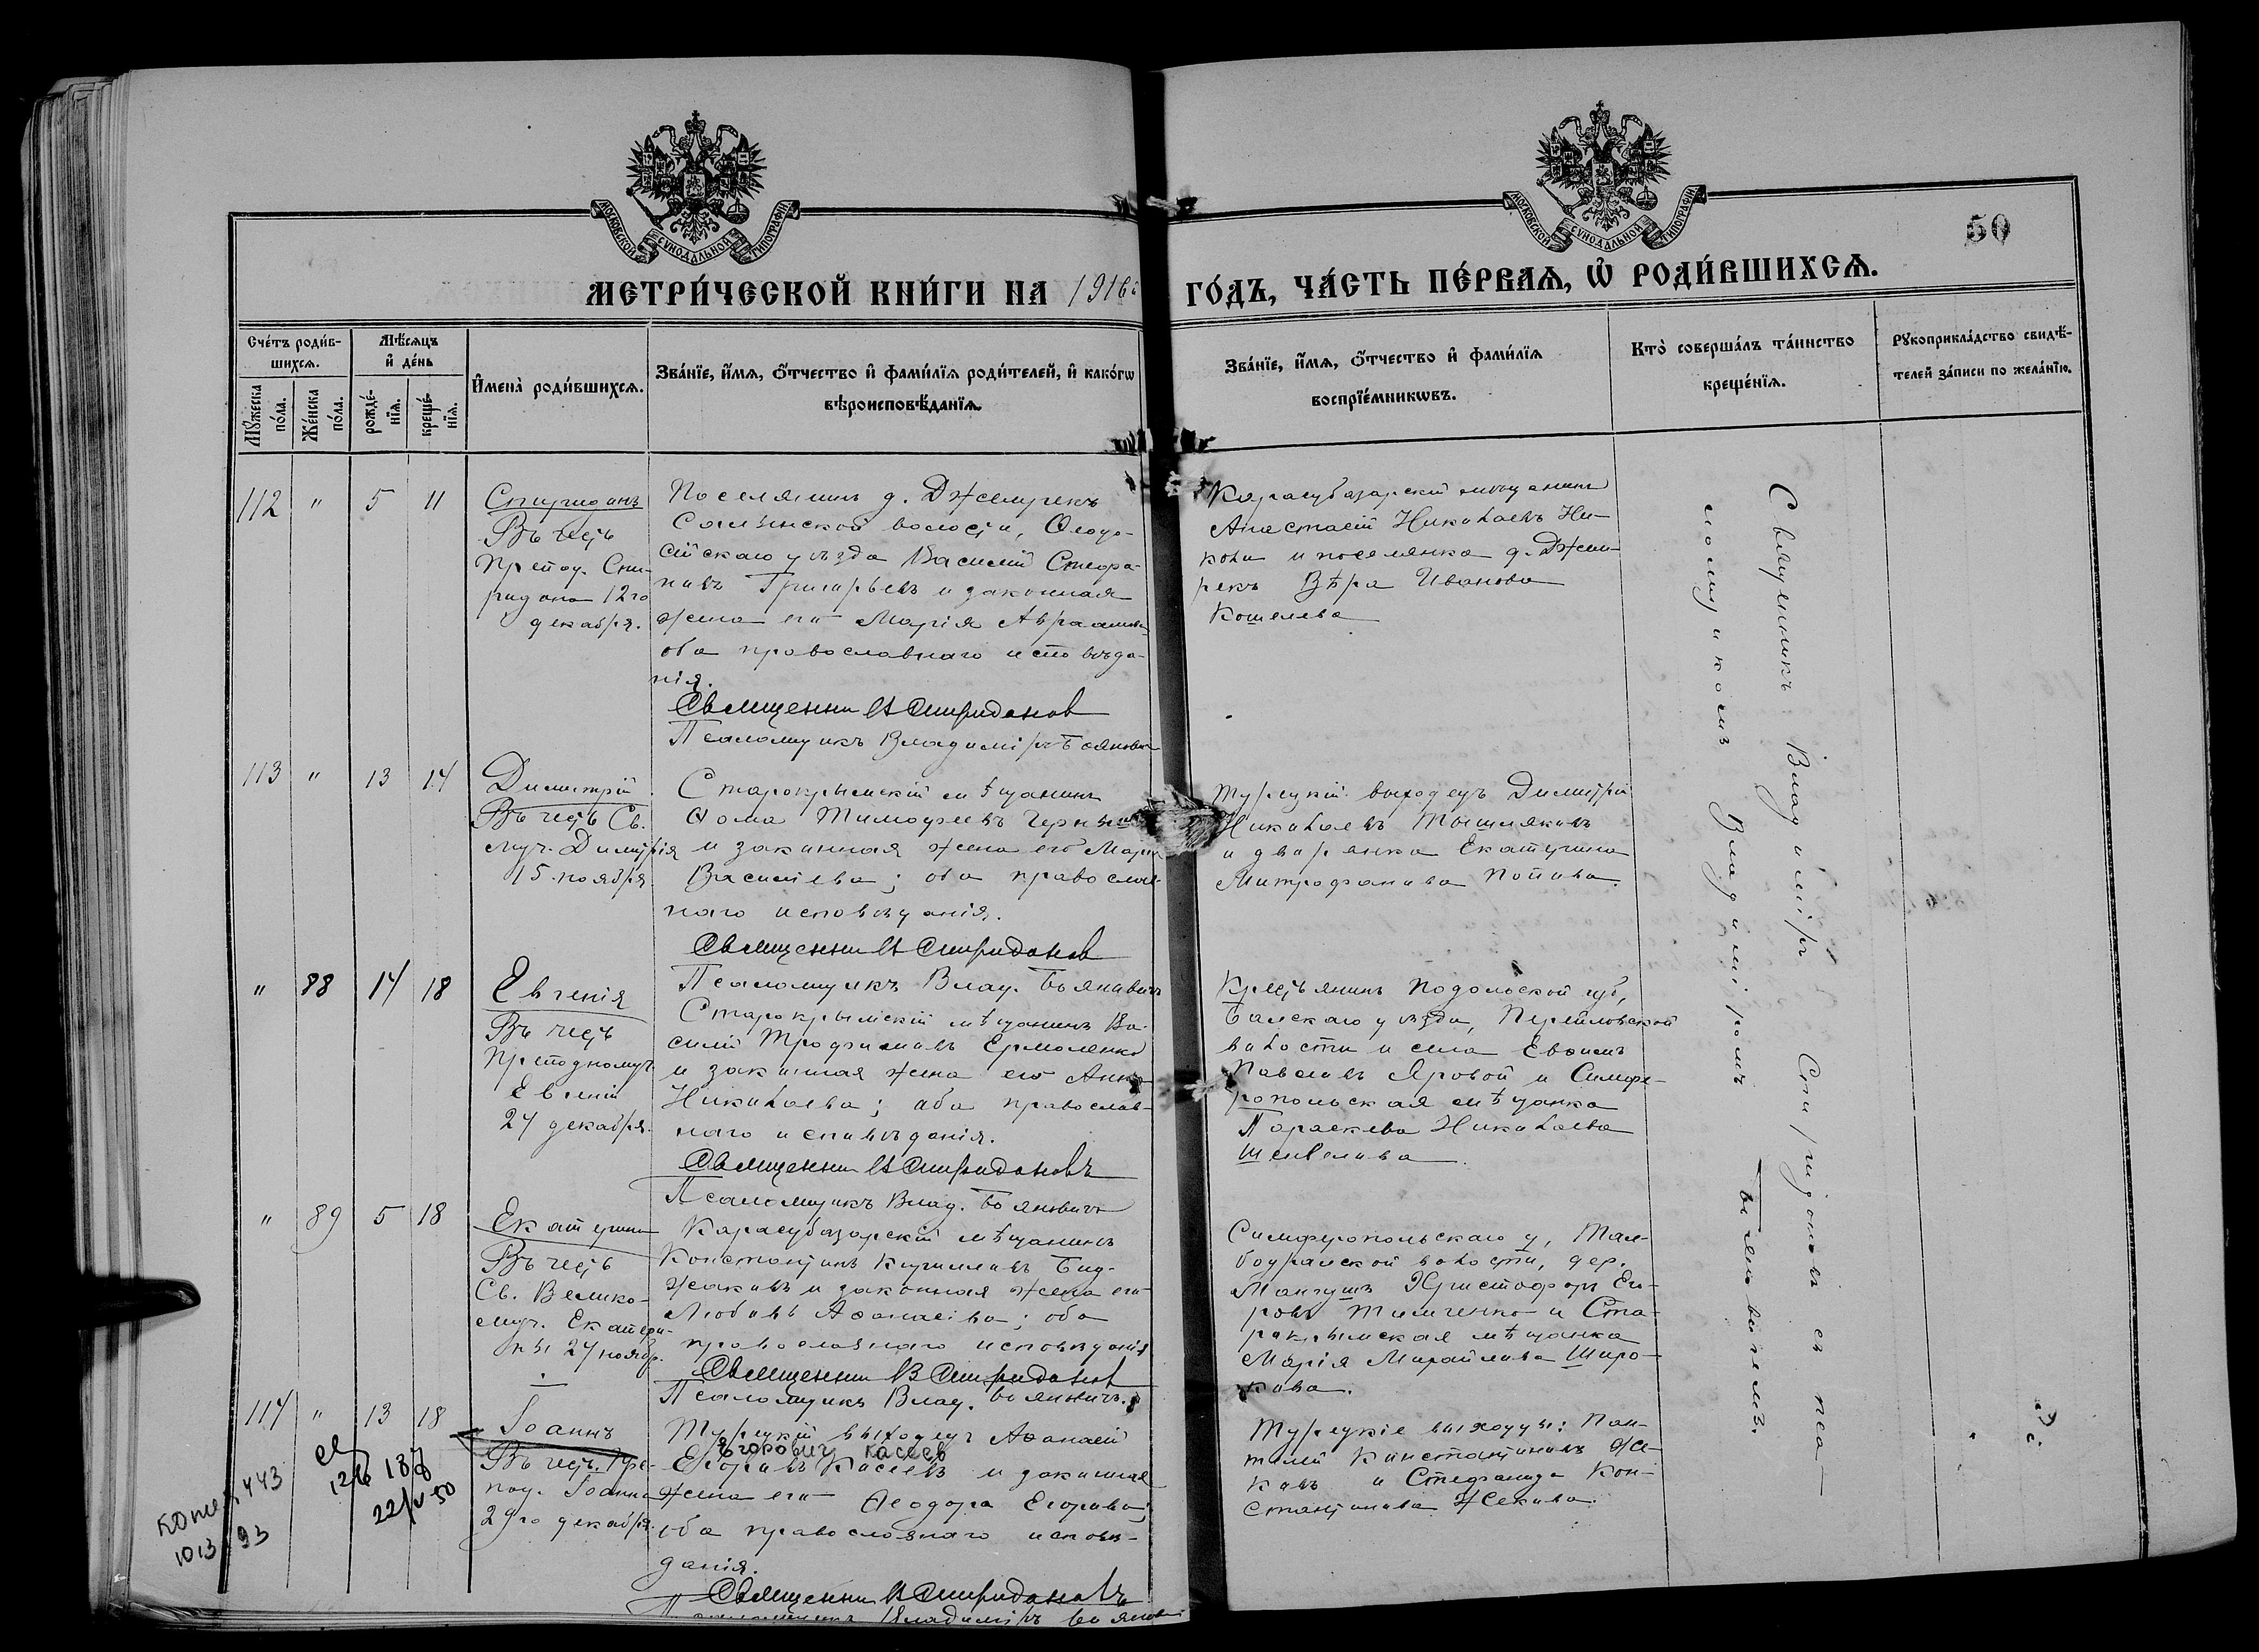 МОСКОВСКОЙ СѴНОДАЛЬНОЙ ТИПОГРАФІИ
МОСКОВСКОЙ СѴНОДАЛЬНОЙ ТИПОГРАФІИ
50
МЕТРИ́ЧЕСКОЙ КНИ́ГИ НА 1916 ГО́ДЪ, ЧА́СТЬ ПЕ́РВАѦ, Ѡ҆ РОДИ́ВШИХСѦ.
Сче́тъ роди́в-
шихсѧ.
Мꙋ́жеска
по́ла.
Же́нска
по́ла.
Мѣ́сѧцъ
и҆ де́нь
рожде́-
нїѧ.
креще́-
нїѧ.
И҆мена̀ роди́вшихсѧ.
Зва́нїе, и҆́мѧ, ѻ҆́тчество и҆ фами́лїѧ роди́телей, и҆ како́гѡ
вѣроисповѣ́данїѧ.
Зва́нїе, и҆́мѧ, ѻ҆́тчество и҆ фами́лїѧ
воспрїе́мникѡвъ.
Кто̀ соверша́лъ та́инство
креще́нїѧ.
Рꙋкоприкла́дство свидѣ́-
телей за́писи по жела́нїю.
112 " 5 11
Спиридонъ
Въ честь
Препод. Спи-
ридона 12го
декабря.
Поселянинъ д. Джемрекъ
Салынской волости, Ѳеодо-
сійскаго уѣзда Василій Стефа-
новъ Григорьевъ и законная
жена его Марія Авраамова
оба православнаго исповѣда-
нія.
Священник Спиридонов
Псаломщикъ Владиміръ Боянович
Карасубазарскій мѣщанинъ
Анастасій Николаевъ Ни-
кола и поселянка д. Джем-
рекъ Вѣра Иванова
Кошелева
113 " 13 14
Димитрій
Въ честь Св.
муч. Димитрія
15 ноября.
Старокрымскій мѣщанинъ
Ѳома Тимофеевъ
и законная жена его Марія
Васильева; оба православ-
наго исповѣданія.
Священник Спиридонов
Псаломщикъ Влад. Бояновичъ
Турецкій выходецъ Димитрій
Николаевъ
и дворянка Екатерина
Митрофанова Попова.
" 88 14 18
Евгенія
Въ честь
Преподномуч.
Евгеніи
24 декабря.
Старокрымскій мѣщанинъ Ва-
силій Трофимовъ Ермоленко
и законная жена его Анна
Николаева; оба православ-
наго исповѣданія.
Священник Спиридоновъ
Псаломщикъ Влад. Бояновичъ
Крестьянинъ Подольской губ,
Балскаго уѣзда,
волости и села Евѳимъ
Павловъ Яровой и Симфе-
ропольская мѣщанка
Параскева Николаева
Шевелева.
" 89 5 18
Екатерина
Въ честь
Св. Велико-
муч. Екатери-
ны 24 ноябр.
Карасубазарскій мѣщанинъ
Константинъ Кирилловъ Бид-
жаковъ и законная жена его
Любовь Аѳанасіева; оба
православнаго исповѣданія
Священник Спиридонов
Псаломщикъ Влад. Бояновичъ.
Симферопольскаго у,
волости, дер.
Мангушъ Христофоръ Его-
ровъ Тимченко и Ста-
рокрымская мѣщанка
Марія Михайлова Широ-
кова.
114 " 13 18
Іоаннъ
Въ честь Пре-
под. Іоанна
29го декабря.
Турецкій выходецъ Аѳанасій
Егорович Касеев
Егоровъ Касеевъ и законная
жена его Ѳеодора Егорова;
оба православнаго исповѣ-
данія.
Священник Спиридоновъ
Псаломщикъ Владиміръ Боянович
Турецкіе выходцы: Пан-
телей Константиновъ Же-
ковъ и Стефанида Кон-
стантинова Жекова.
443
1013 93
22/V 50
Священникъ Владиміръ Спиридоновъ съ пса-
ломщикомъ Владиміромъ Бояновичемъ.